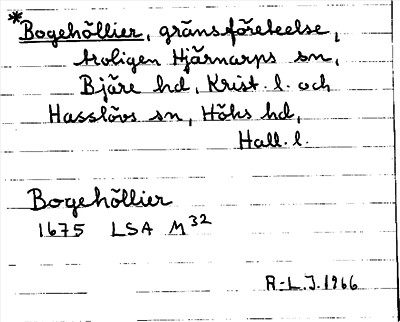 *Bogehöllier, gränsföreteelse,
troligen Hjärnarps sn,
Bjäre hd, Krist. l. och
Hasslövs sn, Höks hd,
Hall. l.
Bogehöllier
1675 LSA M32
R-L.J. 1966